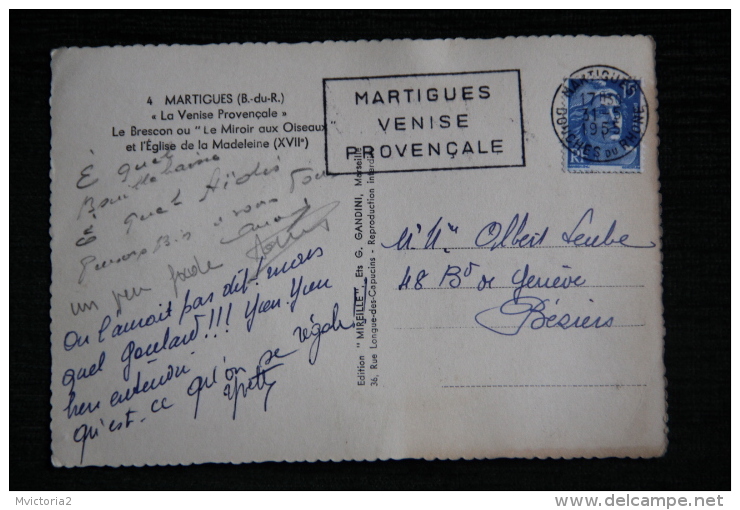 4 MARTIGUES (B.-du-R.)
« La Venise Provençale »
Le Brescon ou "Le Miroir aux Oiseaux"
et l'Église de la Madeleine (XVIIe)
MARTIGUES
VENISE
PROVENÇALE
MARTIGUES
17H
31-
1953
BOUCHES DU RHONE
É quel
É quel Aïoli
un peu
On l'aurait pas dit! mais
quel goulard!!! Yan-Yan
bien entendu.
qu'est-ce qu'on se régale!
Yvette
Edition "MIREILLE", Ets G. GANDINI, Marseille
36, Rue Longue-des-Capucins - Reproduction interdite
M. Mme Albert
48 Bd de Genève
Béziers
Mvictoria2
delcampe.net